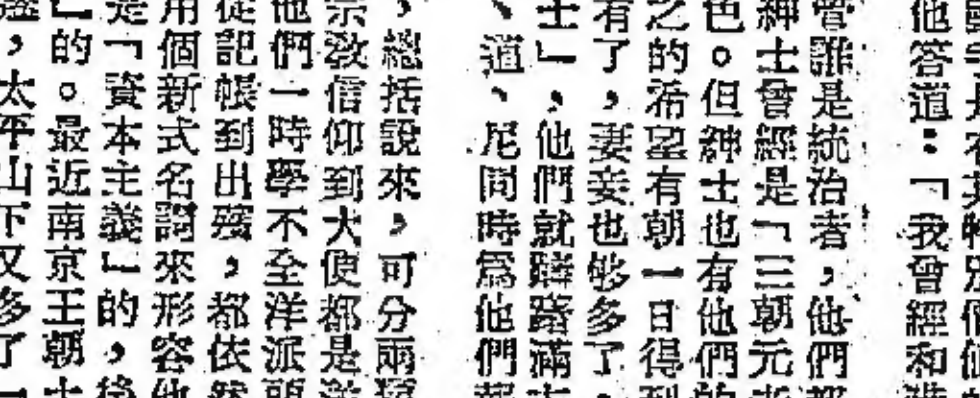 他答道：「我曾經和
管誰是統治者，他們都
紳士曾經是「三朝元老
色。但紳士也有他們的
之的希望有朝一日得到
有了，妻妾也够多了，
士」，他們就躊躇滿志
、道、尼同時爲他們
，總括說來，可分兩
宗敎信仰到大便都是
他們一時學不全洋派
從記帳到出殯，都依然
用個新式名詞來形容他
是「資本主義」的，後
」的。最近南京王朝士
，太平山下又多了一